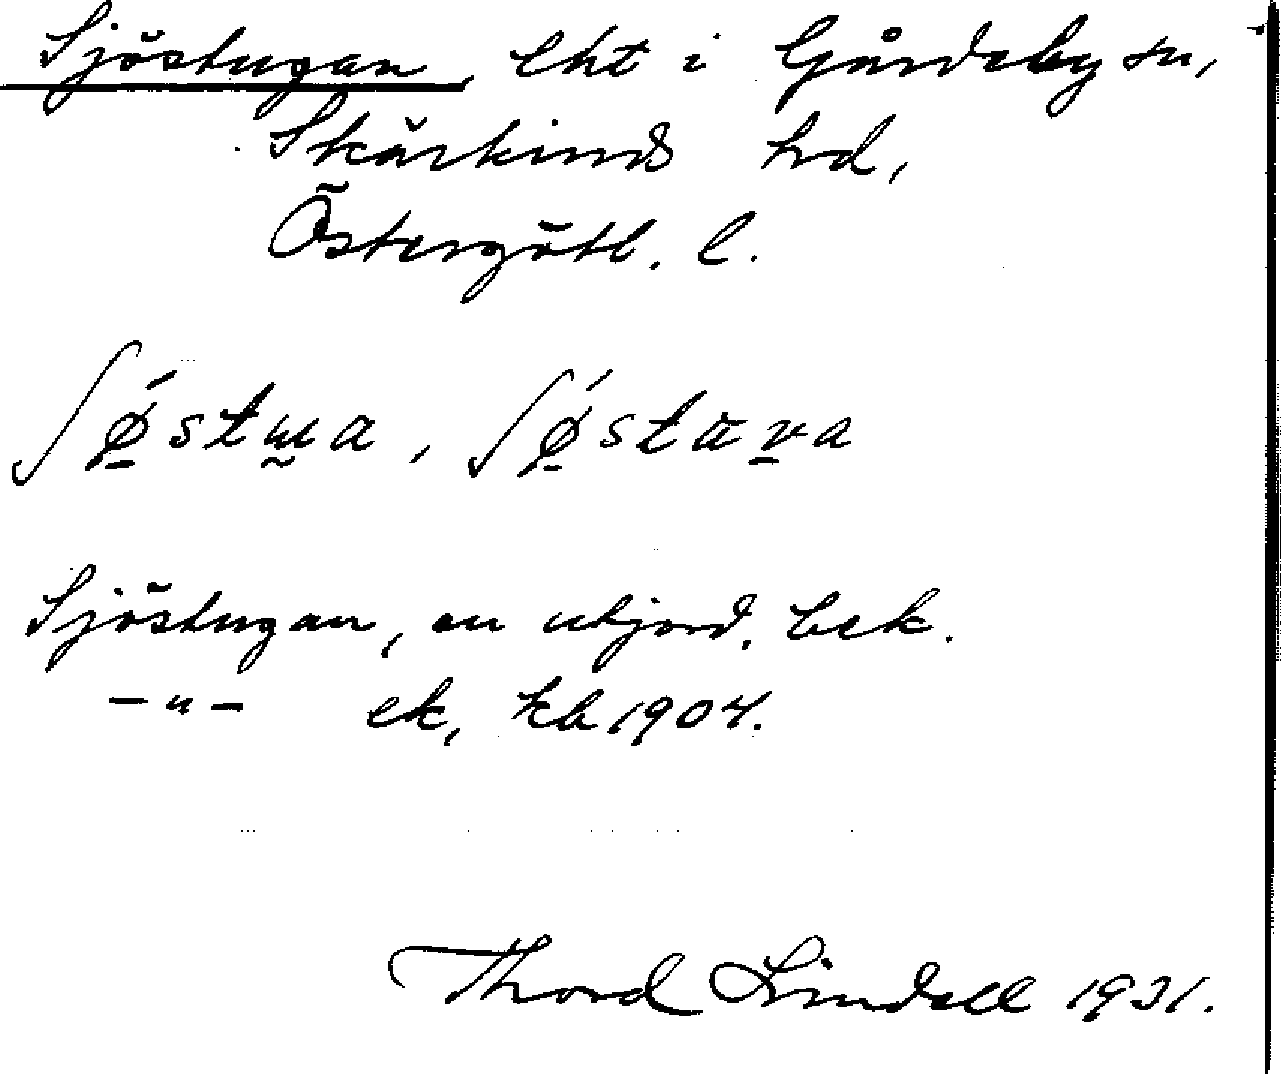 Sjöstugan, lht i Gårdeby sn,
Skärkinds hd,
Östergötl. l.
Sjöstugan, en utjord. bek.
-"- ek, kb 1904.
Thord Lindell 1931.